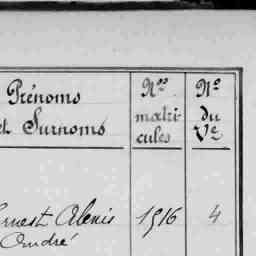 Prénoms
et Surnoms
Nos
matri-
cules
No
du
Ve
Ernest Alexis
André
1916
4